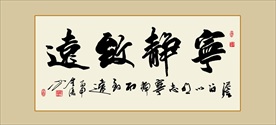 寧靜致遠
澹泊以明志寧靜而致遠